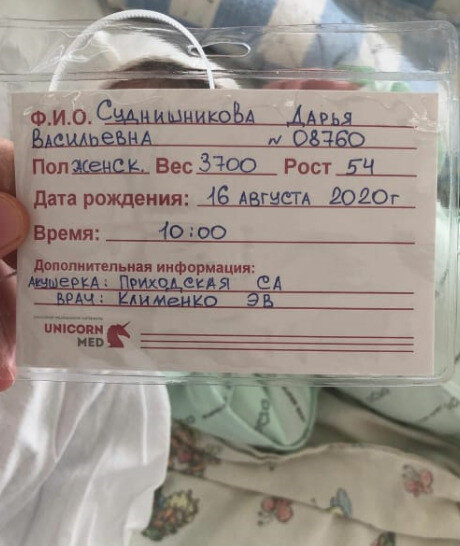 Ф.И.О. Суднишникова Дарья
Васильевна N 08760
Пол женск. Вес 3700 Рост 54
Дата рождения: 16 августа 2020г
Время: 10:00
Дополнительная информация:
Акушерка: Приходская СА
Врач: Клименко ЭВ
UNICORN
MED